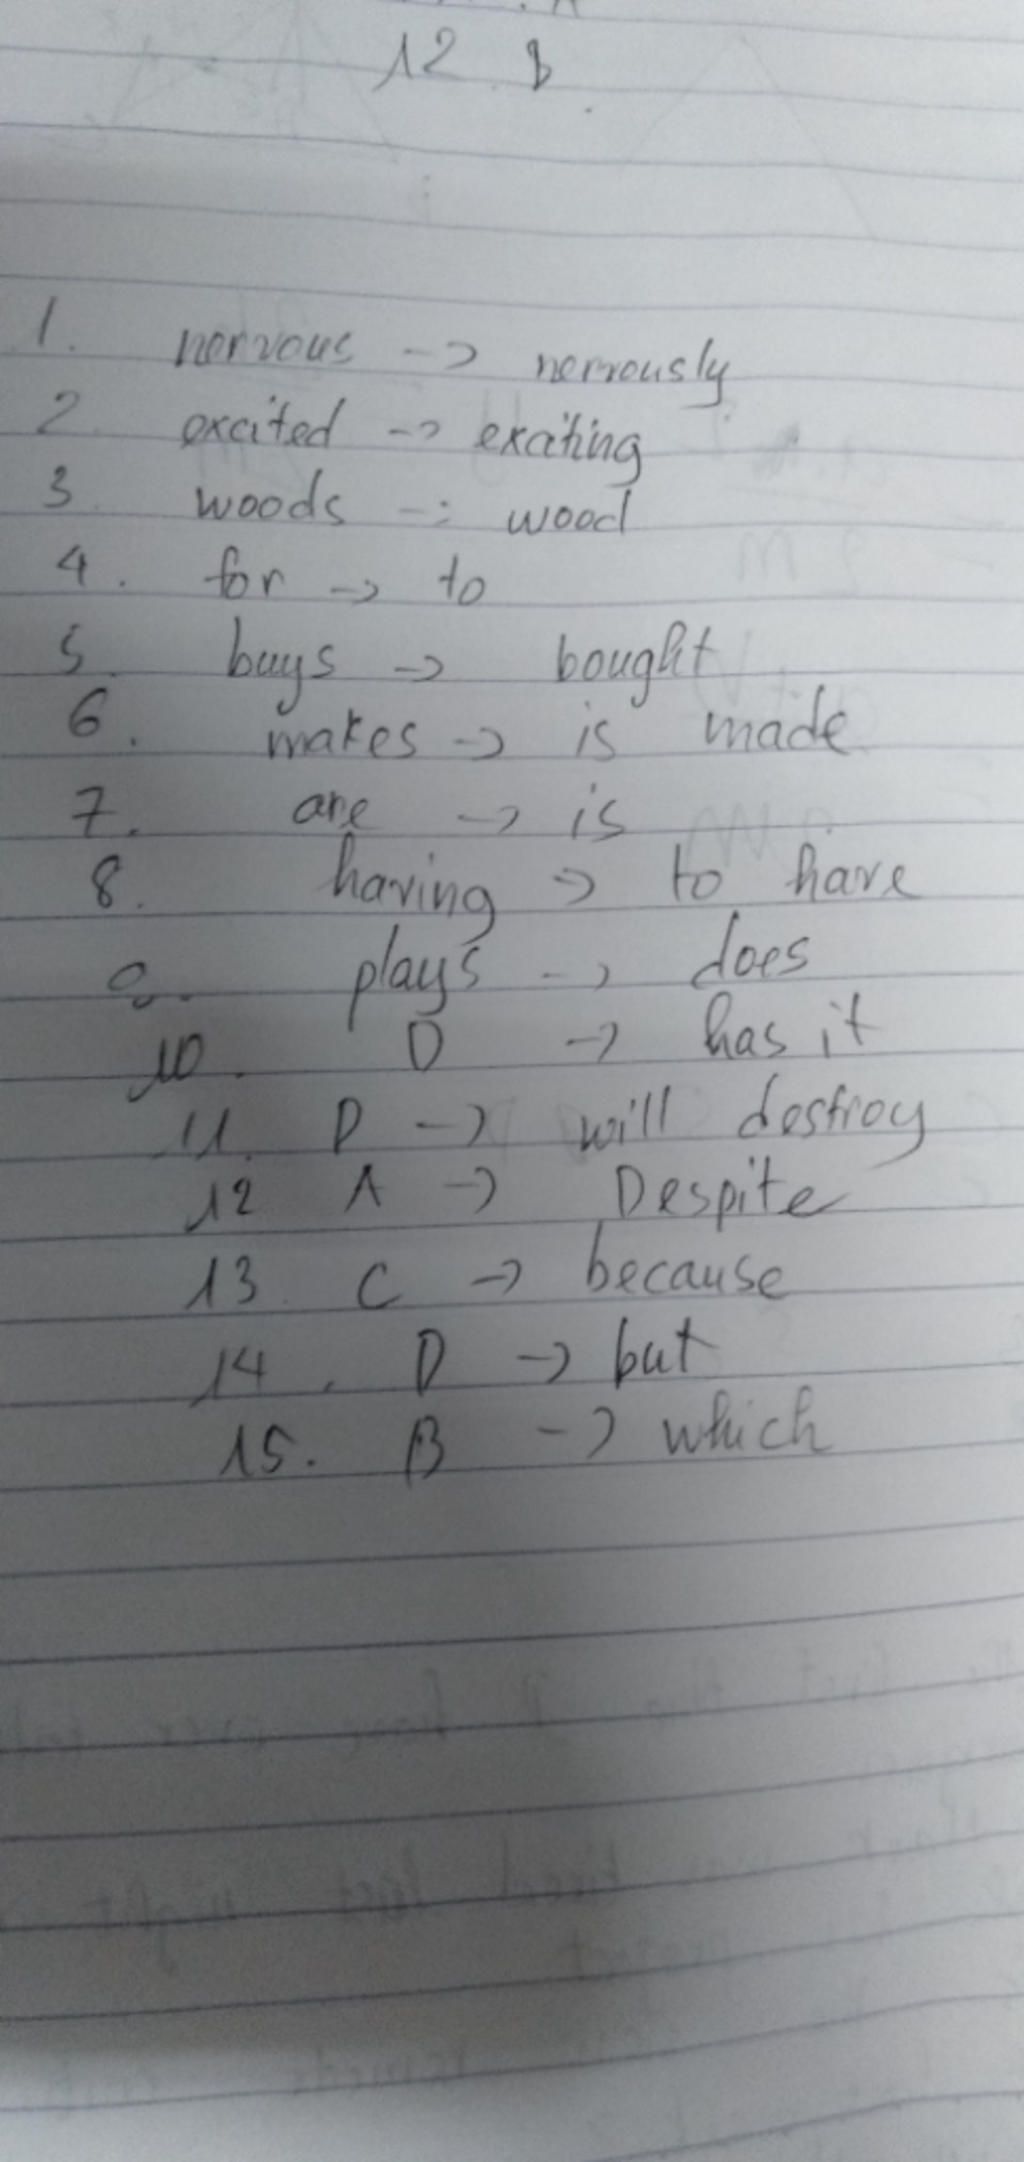 12 B
1. nervous -> nervously
2 excited -> exciting
3 woods -: wood
4. for -> to
5. buys -> bought
6. makes -> is made
7. are -> is
8. having -> to have
9. plays -> does
10. D -> has it
11. D -> will destroy
12 A -> Despite
13. C -> because
14. D -> but
15. B -> which